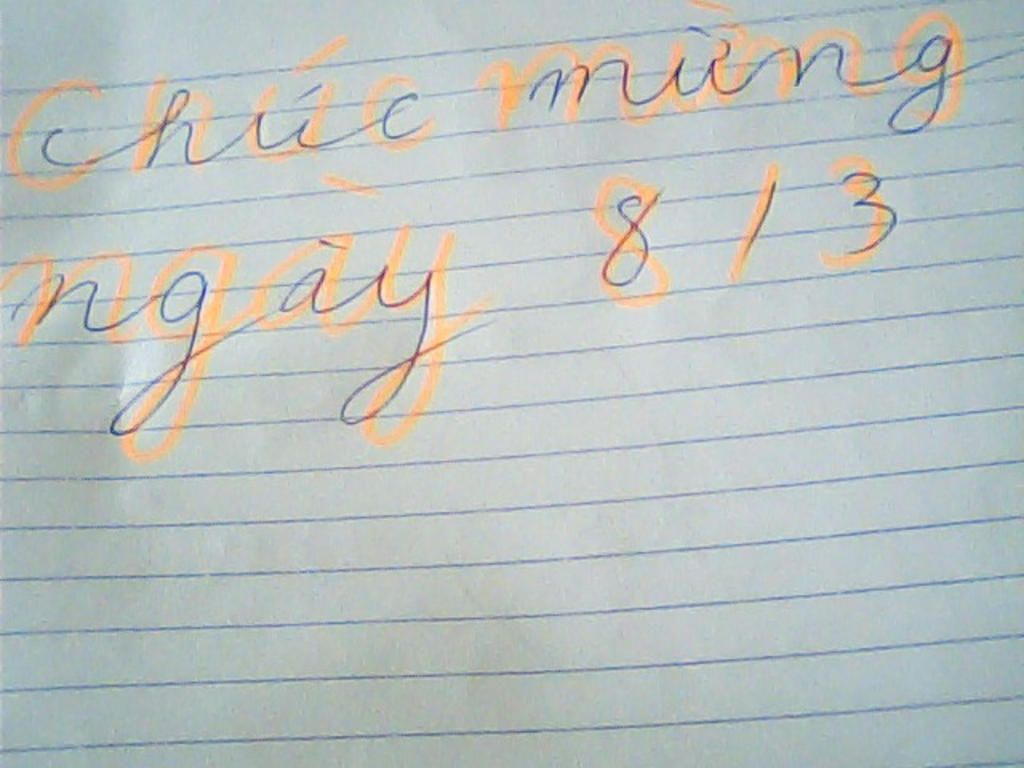 Chúc mừng
ngày 8/3